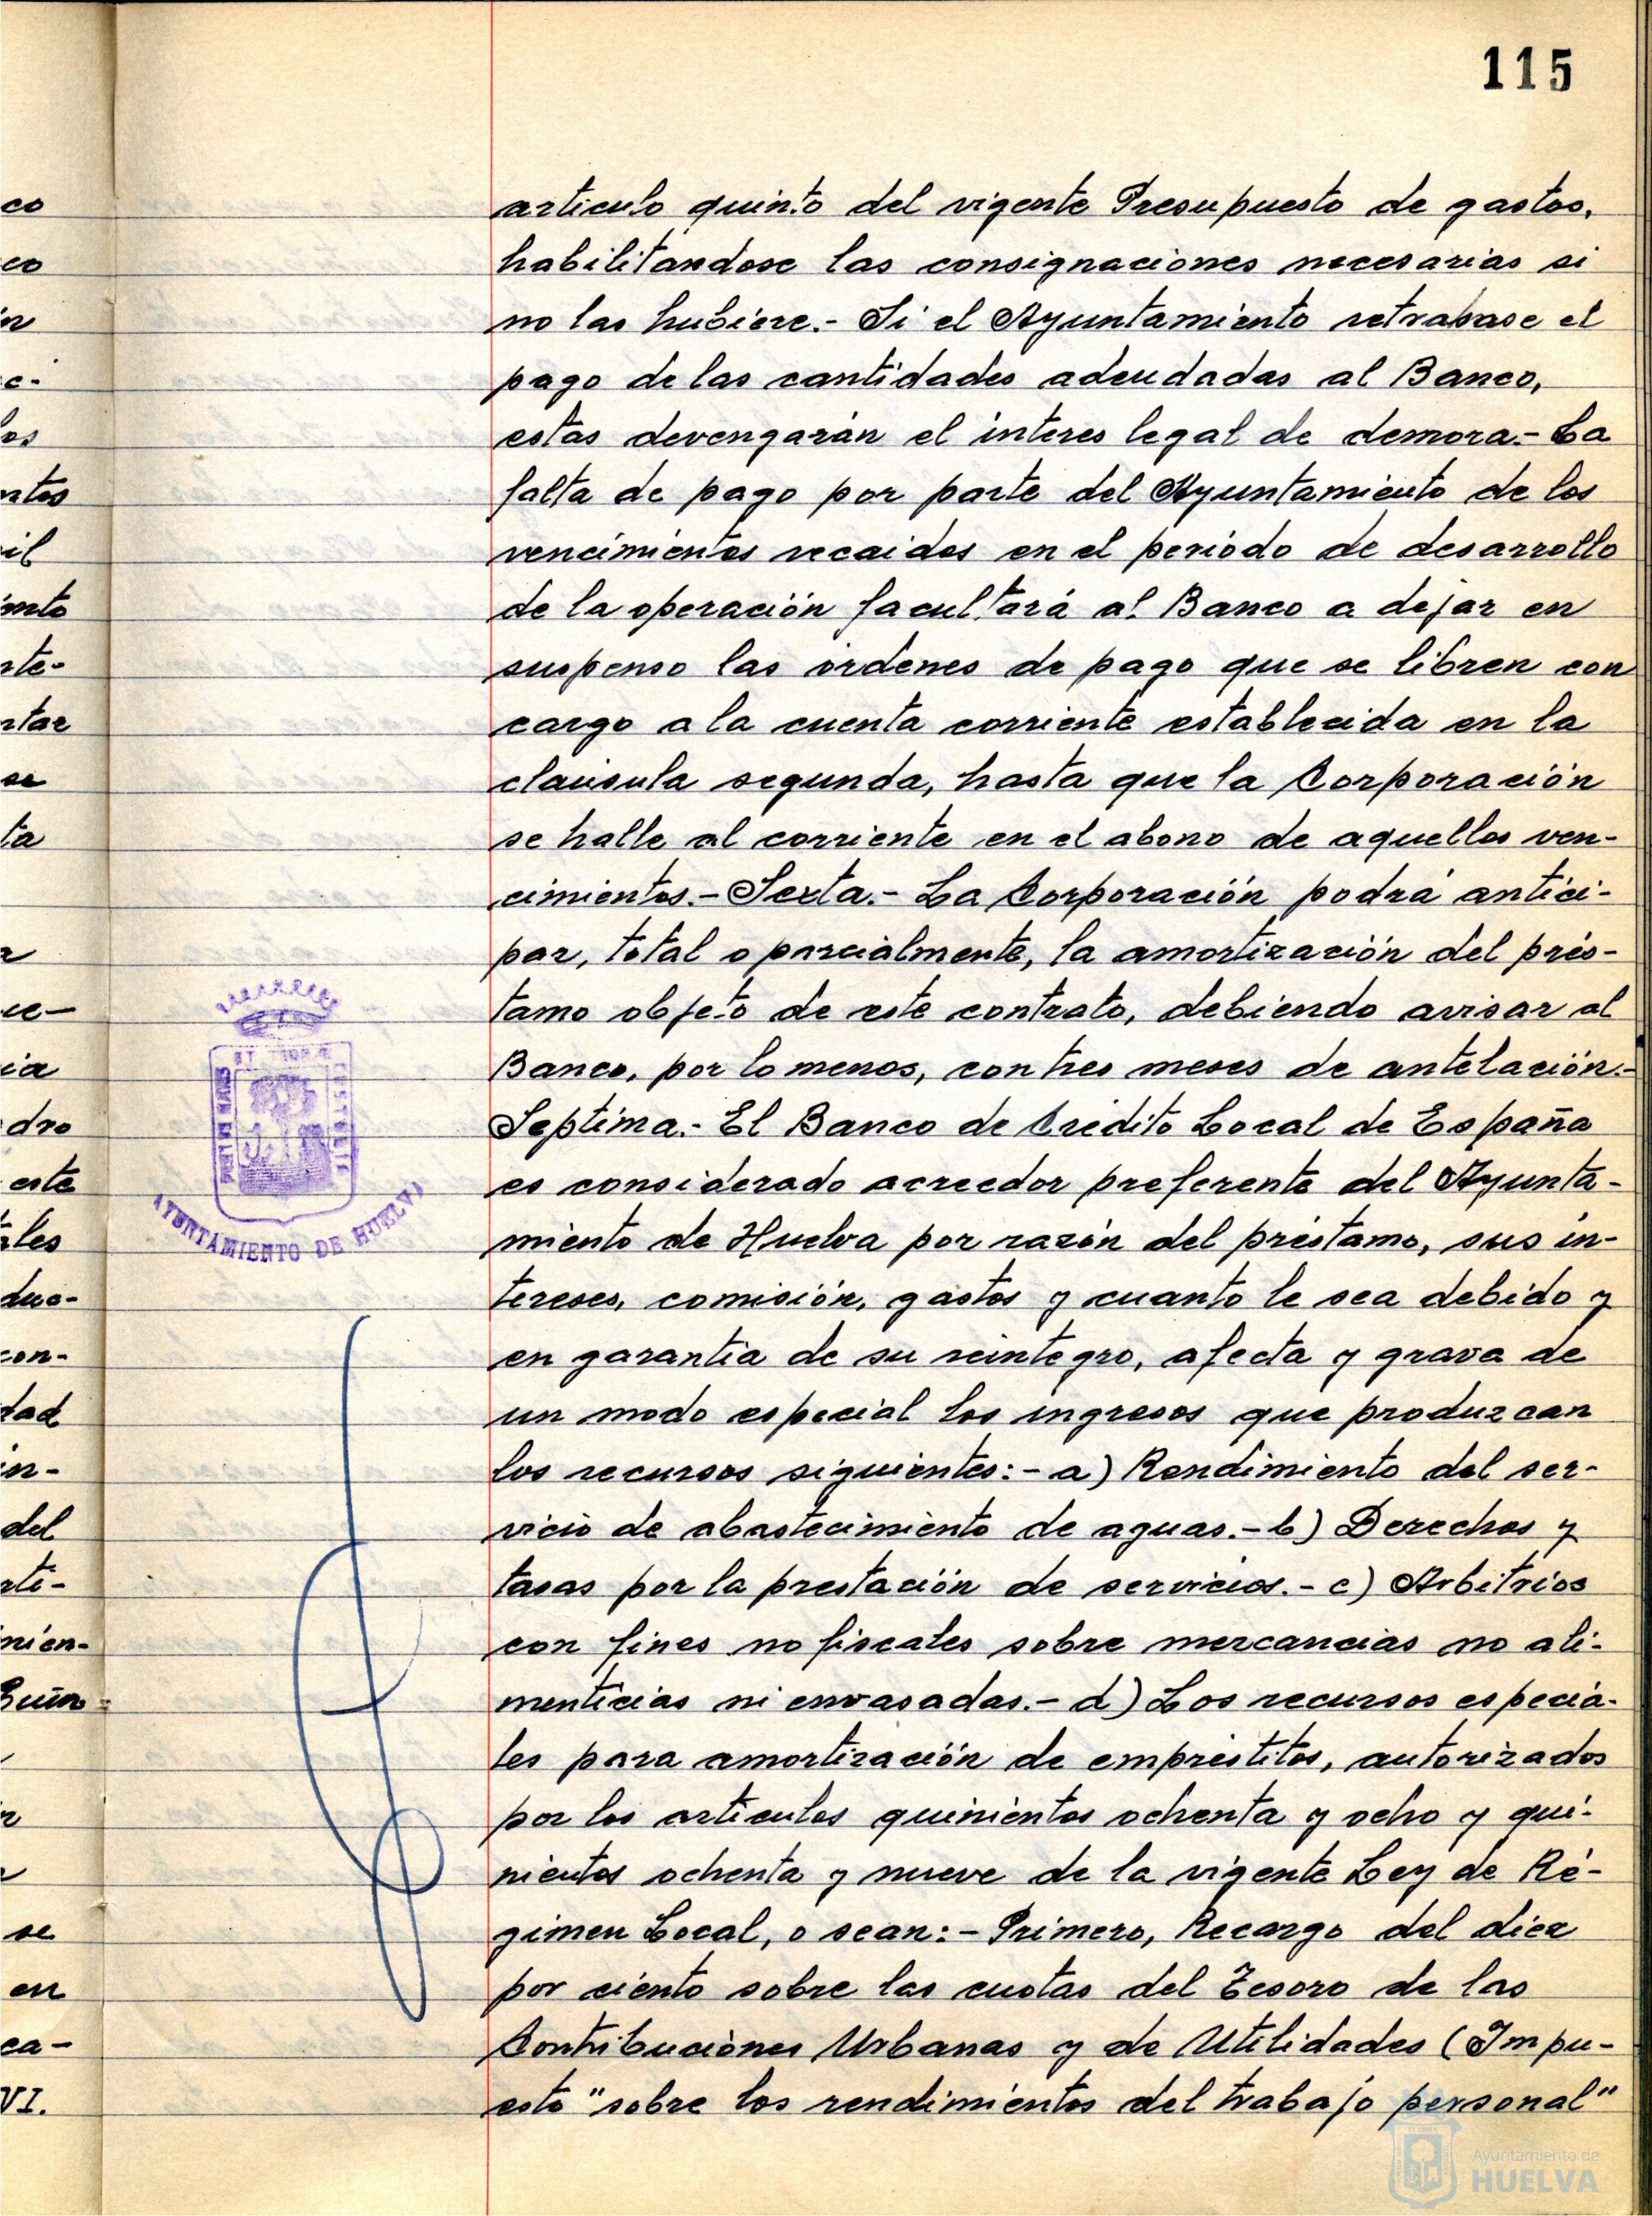 115
articulo quinto del vigente Presupuesto de gastos,
habilitandose las consignaciones necesarias si
no las hubiere.- Si el Ayuntamiento retrasase el
pago de las cantidades adeudadas al Banco,
estas devengarán el interes legal de demora.- La
falta de pago por parte del Ayuntamiento de los
vencimientos recaidos en el periodo de desarrollo
de la operación facultará al Banco a dejar en
suspenso las órdenes de pago que se libren con
cargo a la cuenta corriente establecida en la
clausula segunda, hasta que la Corporación
se halle al corriente en el abono de aquellos ven-
cimientos.- Sexta.- La Corporación podrá antici-
par, total o parcialmente, la amortización del prés-
tamo objeto de este contrato, debiendo avisar al
Banco, por lo menos, con tres meses de antelación.-
Septima.- El Banco de Crédito Local de España
es considerado acreedor preferente del Ayunta-
miento de Huelva por razón del préstamo, sus in-
tereses, comisión, gastos y cuanto le sea debido y
en garantia de su reintegro, afecta y grava de
un modo especial los ingresos que produzcan
los recursos siguientes:- a) Rendimiento del ser-
vicio de abastecimiento de aguas.- b) Derechos y
tasas por la prestación de servicios.- c) Arbitrios
con fines no fiscales sobre mercancias no ali-
menticias ni envasadas.- d) Los recursos especia-
les para amortización de empréstitos, autorizados
por los articulos quinientos ochenta y ocho y qui-
nientos ochenta y nueve de la vigente Ley de Ré-
gimen Local, o sean:- Primero, Recargo del diez
por ciento sobre las cuotas del Tesoro de las
Contribuciones Urbanas y de Utilidades (Impu-
esto "sobre los rendimientos del trabajo personal"
co
co
in
c-
los
ntos
il
ento
nte-
ntar
se
ta
ce-
ia
dro
este
ales
duc-
con-
dad
in-
del
nti-
mien-
se
en
ca-
VI.
AYUNTAMIENTO DE HUELVA
Ayuntamiento de
HUELVA